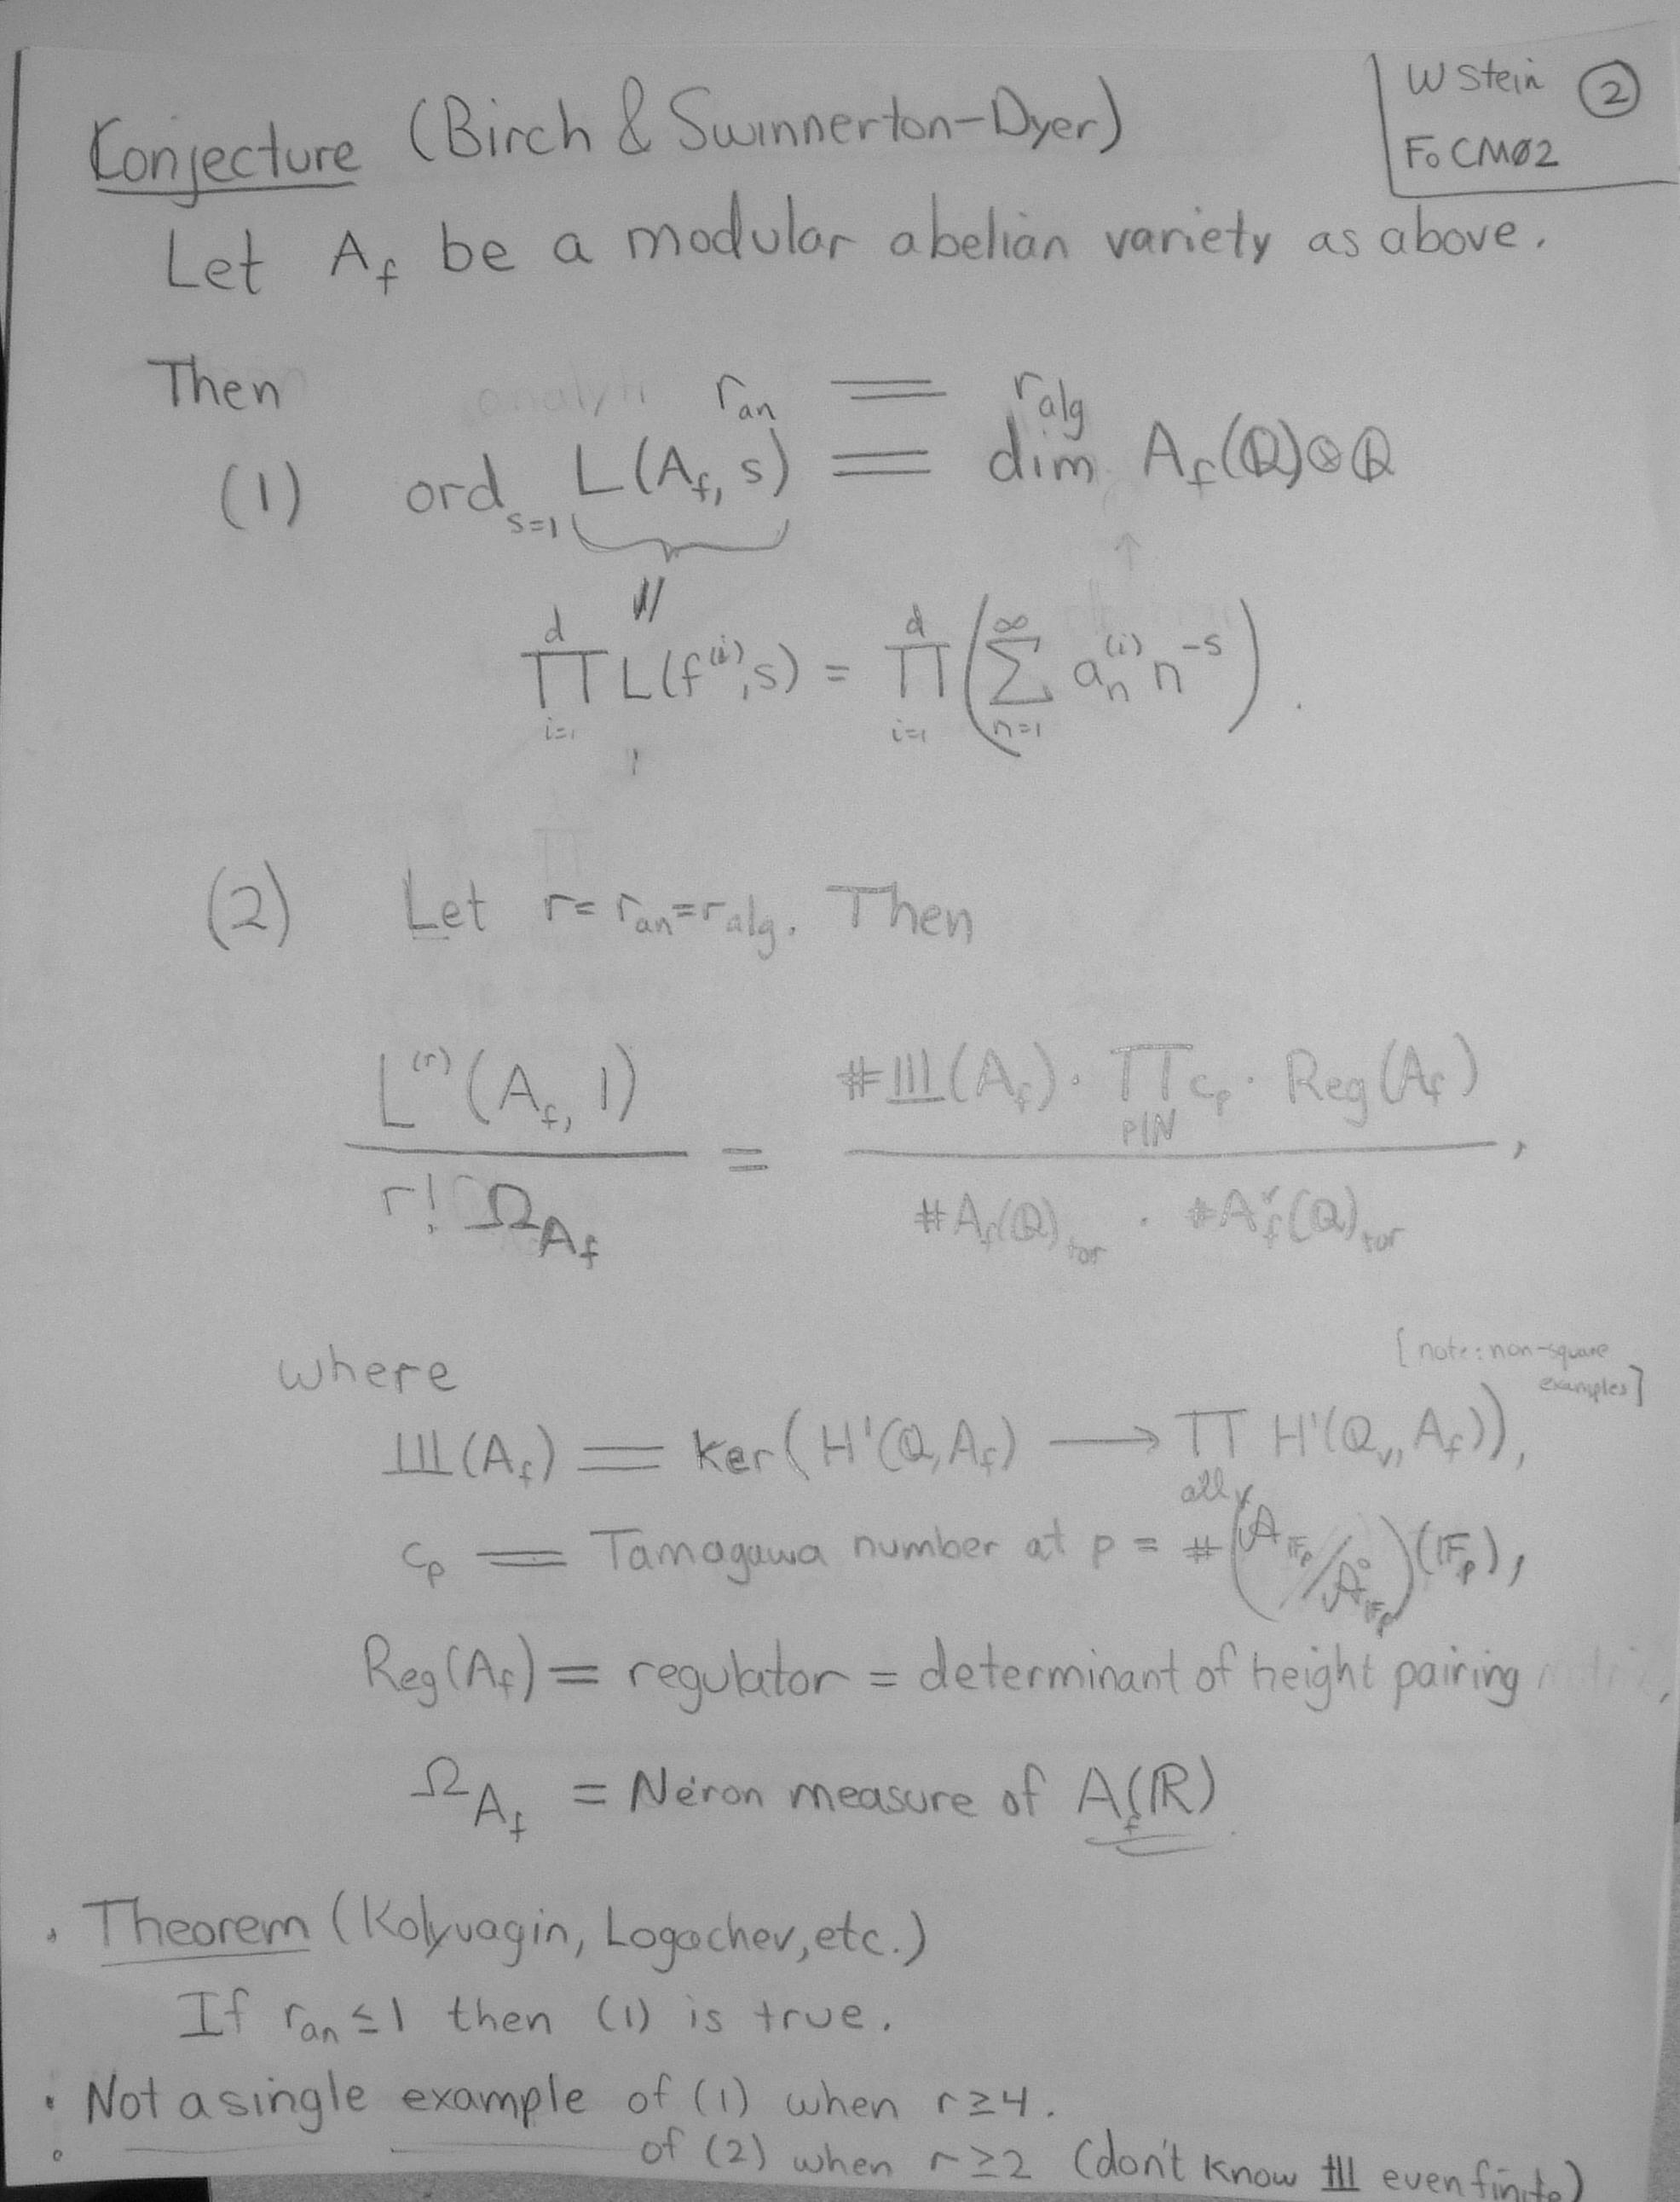 W Stein ②
FoCM02
Conjecture (Birch & Swinnerton-Dyer)
Let A_f be a modular abelian variety as above.
Then
r_an = r_alg
(1) ord_{s=1} L(A_f, s) = dim A_f(ℚ)⊗ℚ
||
∏_{i=1}^{d} L(f^{(i)}, s) = ∏_{i=1}^{d} (∑_{n=1}^{∞} a_n^{(i)} n^{-s}).
(2) Let r = r_an = r_alg. Then
L^{(r)}(A_f, 1) / r! Ω_{A_f} = #Ш(A_f) · ∏_{p|N} c_p · Reg(A_f) / #A_f(ℚ)_tor · #A_f^∨(ℚ)_tor,
where
[note: non-square
examples]
Ш(A_f) = ker(H¹(ℚ, A_f) ⟶ ∏_{all v} H¹(ℚ_v, A_f)),
c_p = Tamagawa number at p = #(𝒜_{𝔽_p}/𝒜°_{𝔽_p})(𝔽_p),
Reg(A_f) = regulator = determinant of height pairing
Ω_{A_f} = Néron measure of A_f(ℝ)
• Theorem (Kolyvagin, Logachev, etc.)
If r_an ≤ 1 then (1) is true.
• Not a single example of (1) when r ≥ 4.
of (2) when r ≥ 2 (don't know Ш even finite)